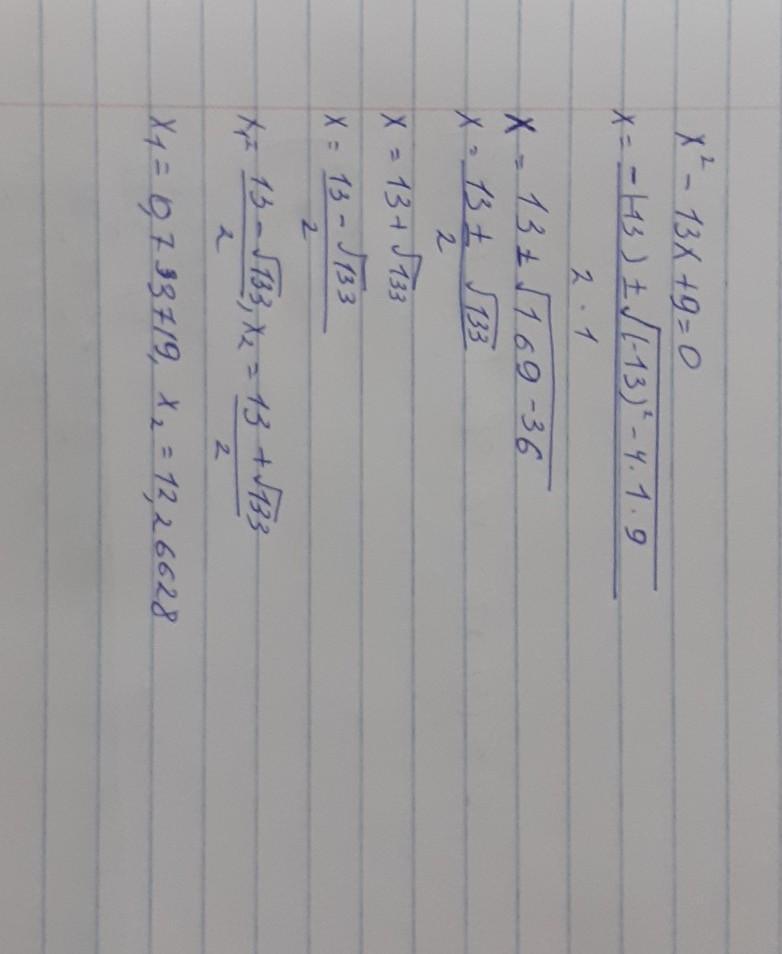 x² - 13x + 9 = 0
x = -(-13) ± √(-13)² - 4 · 1 · 9
2 · 1
x = 13 ± √169 - 36
x = 13 ± √133
2
x = 13 + √133
x = 13 - √133
2
x₁ = 13 - √133, x₂ = 13 + √133
2 2
x₁ = 0,733719, x₂ = 12,26628